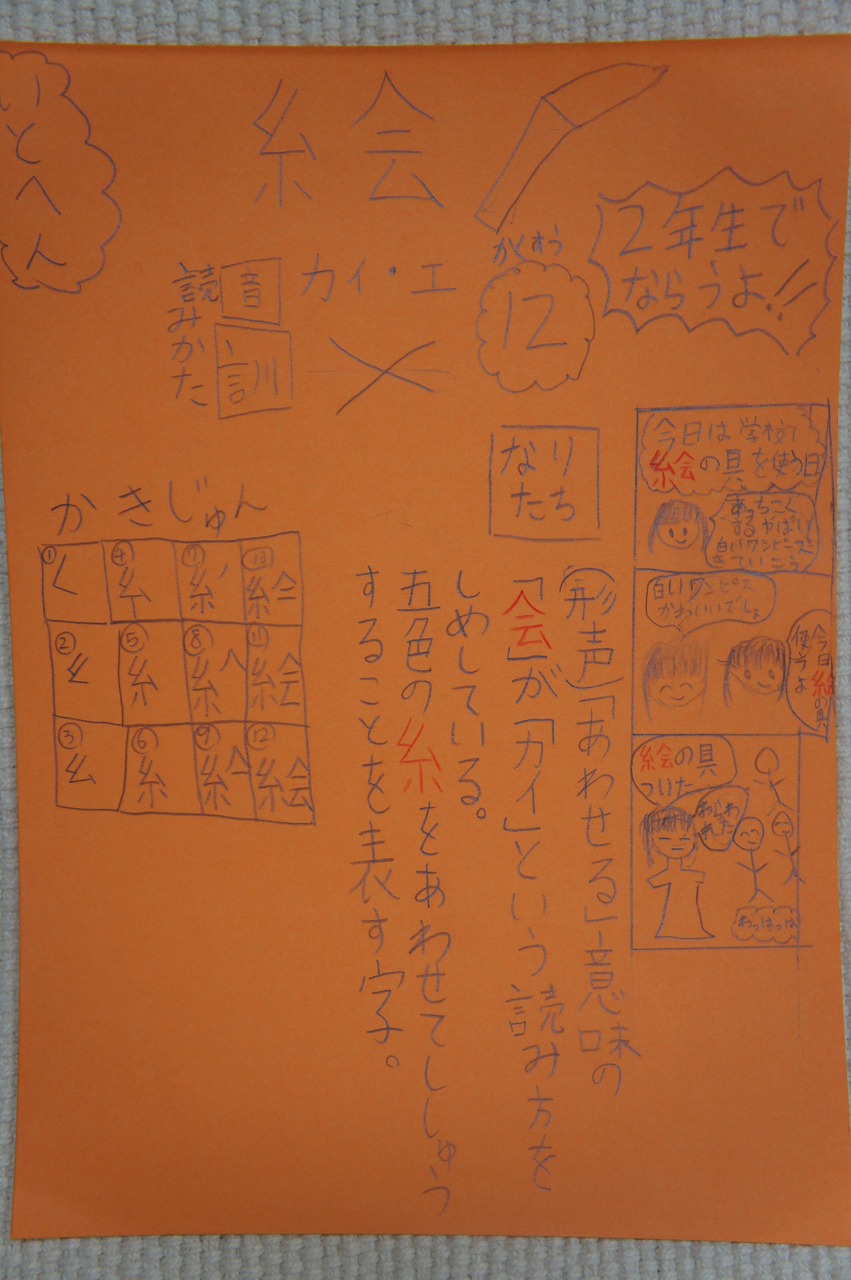 いとへん
絵
かくすう
12
2年生で
ならうよ!!
読みかた
音
カイ・エ
訓
なり
たち
(形声)「あわせる」意味の
「会」が「カイ」という読み方を
しめしている。
五色の糸をあわせてししゅう
することを表す字。
かきじゅん
①
②
③
④
⑤
⑥
⑦
⑧
⑨
⑩
⑪ 絵
⑫ 絵
今日は学校で
絵の具を使う日
白いワンピース
きていこう
白いワンピス
かわいいでしょ
今日絵の具
使うよ
絵の具
ついた
わっはっは